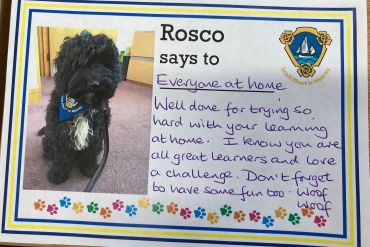 Rosco
says to
Everyone at home
Well done for trying so
hard with your learning
at home. I know you are
all great learners and love
a challenge. Don't forget
to have some fun too. Woof
Woof